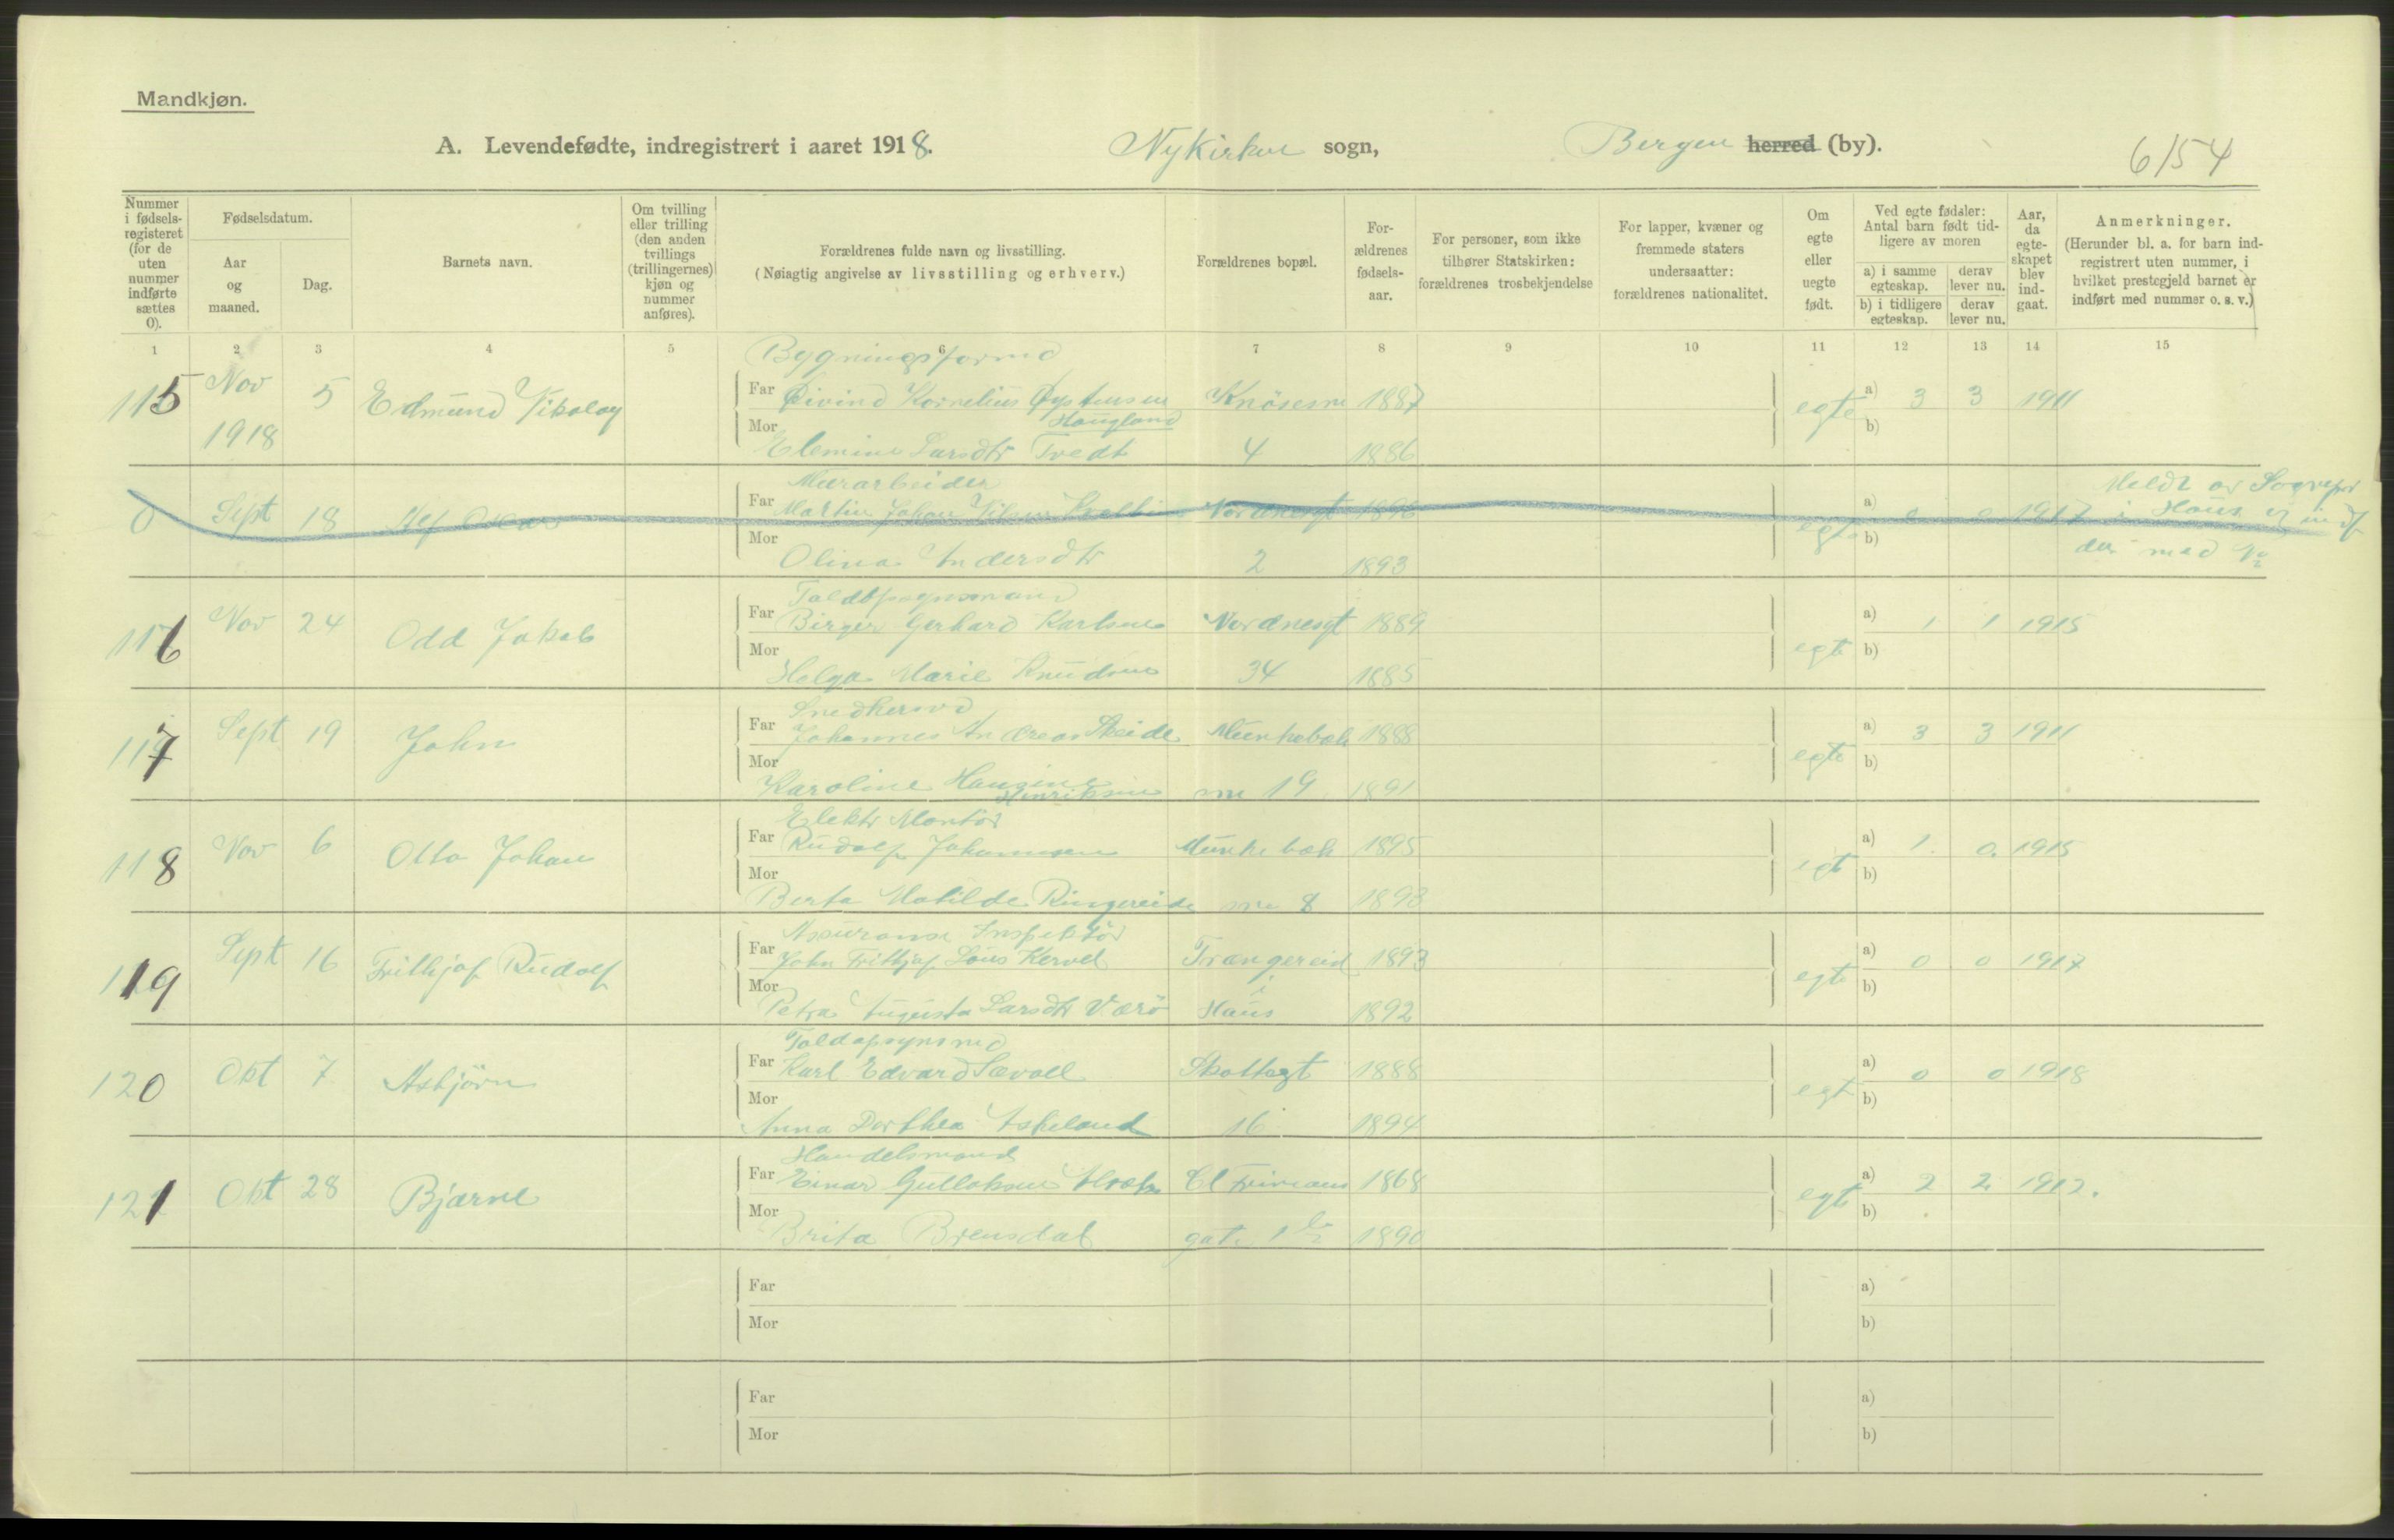 Mandkjøn.
A. Levendefødte, indregistrert i aaret 1918. Nykirken sogn, Bergen herred (by). 6/54
Nummer i fødselsregisteret (for de uten nummer indførte sættes 0).
Fødselsdatum.
Aar og maaned.
Dag.
Barnets navn.
Om tvilling eller trilling (den anden tvillings (trillingernes) kjøn og nummer anføres).
Forældrenes fulde navn og livsstilling.
(Nøiagtig angivelse av livsstilling og erhverv.)
Forældrenes bopæl.
Forældrenes fødselsaar.
For personer, som ikke tilhører Statskirken: forældrenes trosbekjendelse
For lapper, kvæner og fremmede staters undersaatter: forældrenes nationalitet.
Om egte eller uegte født.
Ved egte fødsler: Antal barn født tidligere av moren
a) i samme egteskap. derav lever nu.
b) i tidligere egteskap. derav lever nu.
Aar, da egteskapet blev indgaat.
Anmerkninger.
(Herunder bl. a. for barn indregistrert uten nummer, i hvilket prestegjeld barnet er indført med nummer o. s. v.)
1 2 3 4 5 6 7 8 9 10 11 12 13 14 15
Bygningsformd
115 Nov 5 Edmund Nikolay Far Øivind Kornelius Øystensen Knösesm 1887 egte a) 3 3 1911
1918 Hougland
Mor Elemine Larsdtr Tvedt 4 1886 b)
Murarbeider Meldt av Sognepr
0 Sept 18 Alf Oskar Far Martin Johan Nilsen Nordnesgt 1896 egte a) 0 0 1917 i Haus og indf
Mor Olina Andersdtr 2 1893 b) der med No
Toldopsynsmand
116 Nov 24 Odd Jakob Far Birger Gerhard Karlsen Nordnesgt 1889 egte a) 1 1 1915
Mor Helga Marie Knudsen 34 1885 b)
Snedkersvd
117 Sept 19 John Far Johannes Andreas Skeide Munkebæk 1888 egte a) 3 3 1911
Mor Karoline Hansine Henriksen sm 19 1891 b)
Elektr Montör
118 Nov 6 Otto Johan Far Rudolf Johannesen Munkebæk 1895 egt a) 1 0 1915
Mor Berta Matilde Ringereide sm 8 1893 b)
Assuranse Inspektör
119 Sept 16 Frithjof Rudolf Far John Frithjof Lous Kervel Trængereid 1893 egte a) 0 0 1917
i
Mor Petra Augusta Larsdtr Værö Haus 1892 b)
Toldopsynsmd
120 Okt 7 Asbjörn Far Karl Edvard Sævoll Skottegt 1888 egt a) 0 0 1918
Mor Anna Dorthea Askeland 16 1894 b)
Handelsmand
121 Okt 28 Bjarne Far Einar Gullaksen Cl Frimans 1868 egt a) 2 2 1912.
Mor Brita Brensdal gate 1 b 1890 b)
Far a)
Mor b)
Far a)
Mor b)